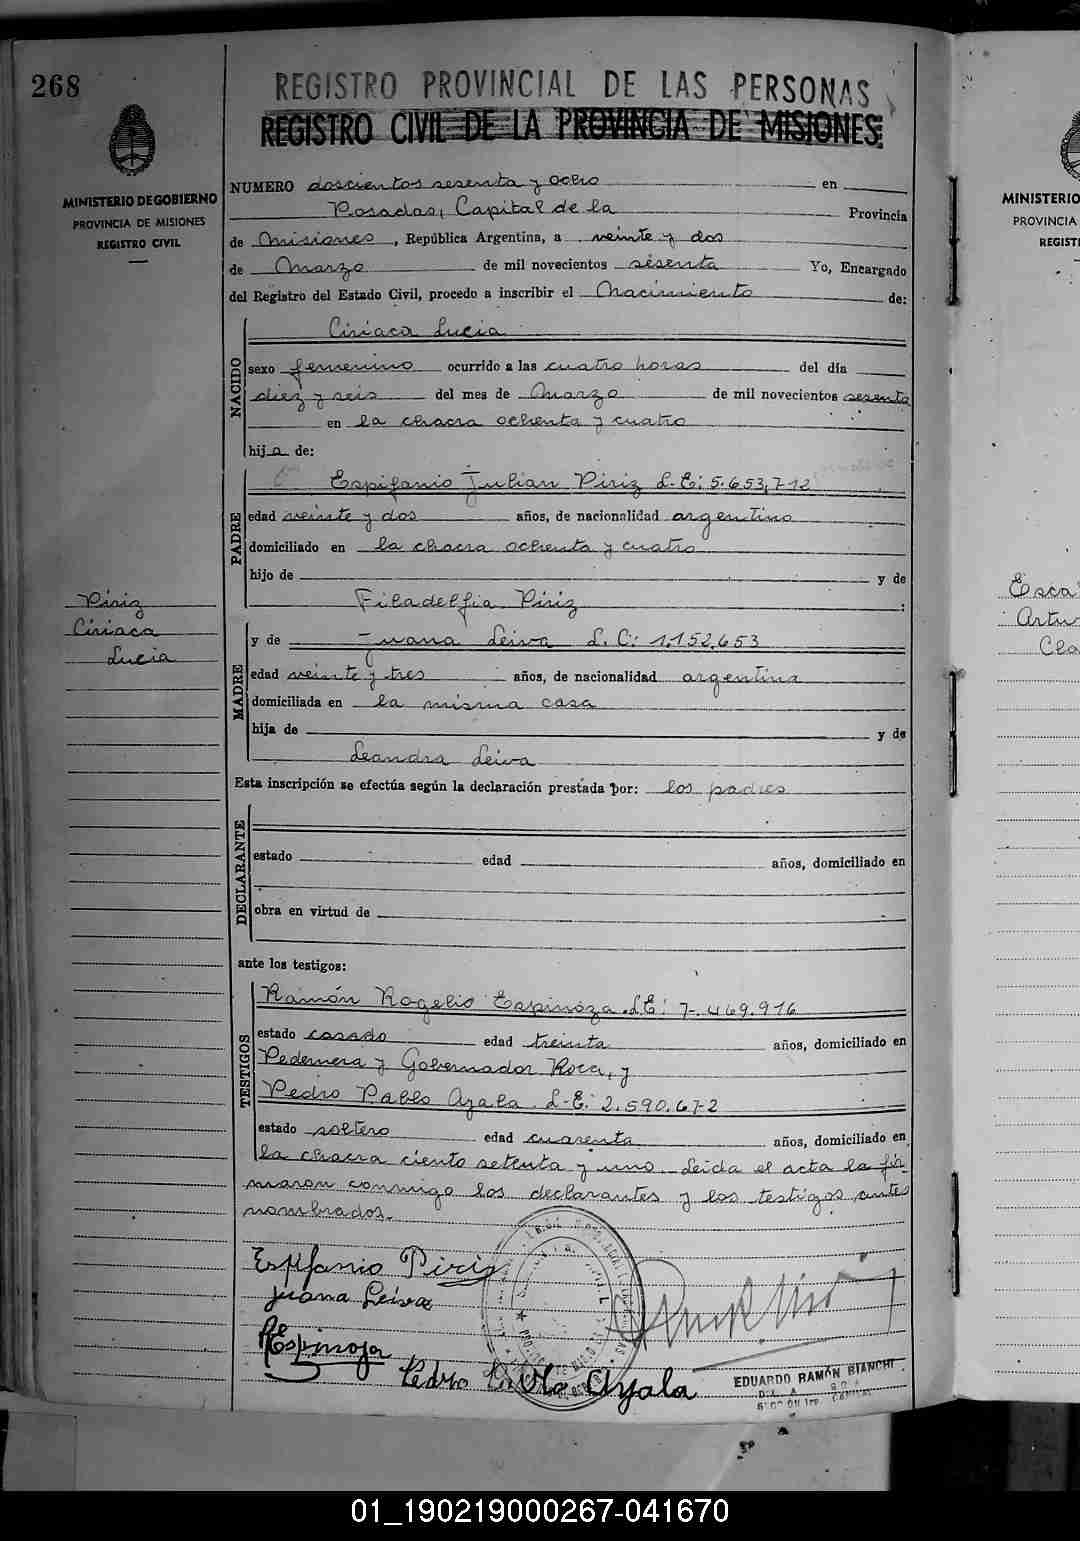 268
REGISTRO PROVINCIAL DE LAS PERSONAS
REGISTRO CIVIL DE LA PROVINCIA DE MISIONES
MINISTERIO DE GOBIERNO
PROVINCIA DE MISIONES
REGISTRO CIVIL
NUMERO doscientos sesenta y ocho en
Posadas, Capital de la Provincia
de Misiones, República Argentina, a veinte y dos
de Marzo de mil novecientos sesenta Yo, Encargado
del Registro del Estado Civil, procedo a inscribir el Nacimiento de:
NACIDO
Ciriaca Lucia
sexo femenino ocurrido a las cuatro horas del día
diez y seis del mes de Marzo de mil novecientos sesenta
en la chacra ochenta y cuatro
hija de:
PADRE
Espifanio Julian Piriz L.E: 5.653,712
edad veinte y dos años, de nacionalidad argentino
domiciliado en la chacra ochenta y cuatro
hijo de y de
Filadelfia Piriz :
Piriz
Ciriaca
Lucia
MADRE
y de Juana Leiva L.C: 1.152.653
edad veinte y tres años, de nacionalidad argentina
domiciliada en la misma casa
hija de y de
Leandra Leiva
Esta inscripción se efectúa según la declaración prestada por: los padres
DECLARANTE
estado edad años, domiciliado en
obra en virtud de
ante los testigos:
TESTIGOS
Ramón Rogelio Espinoza L.E: 7.469.916
estado casado edad treinta años, domiciliado en
Pedernera y Gobernador Roca, y
Pedro Pablo Ayala L.E: 2.590.672
estado soltero edad cuarenta años, domiciliado en
la chacra ciento setenta y uno. Leida el acta la fir
maron conmigo los declarantes y los testigos antes
nombrados.
Espifanio Piriz
Juana Leiva
REspinoza
Pedro Pablo Ayala
EDUARDO RAMÓN BIANCHI
MINISTERIO
PROVINCIA
REGIST
Esca
Artu
Cla
01_190219000267-041670